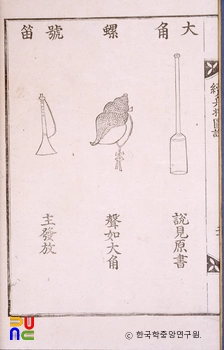 大角
說見原書
螺
聲如大角
號笛
主發放
ⓒ 한국학중앙연구원.